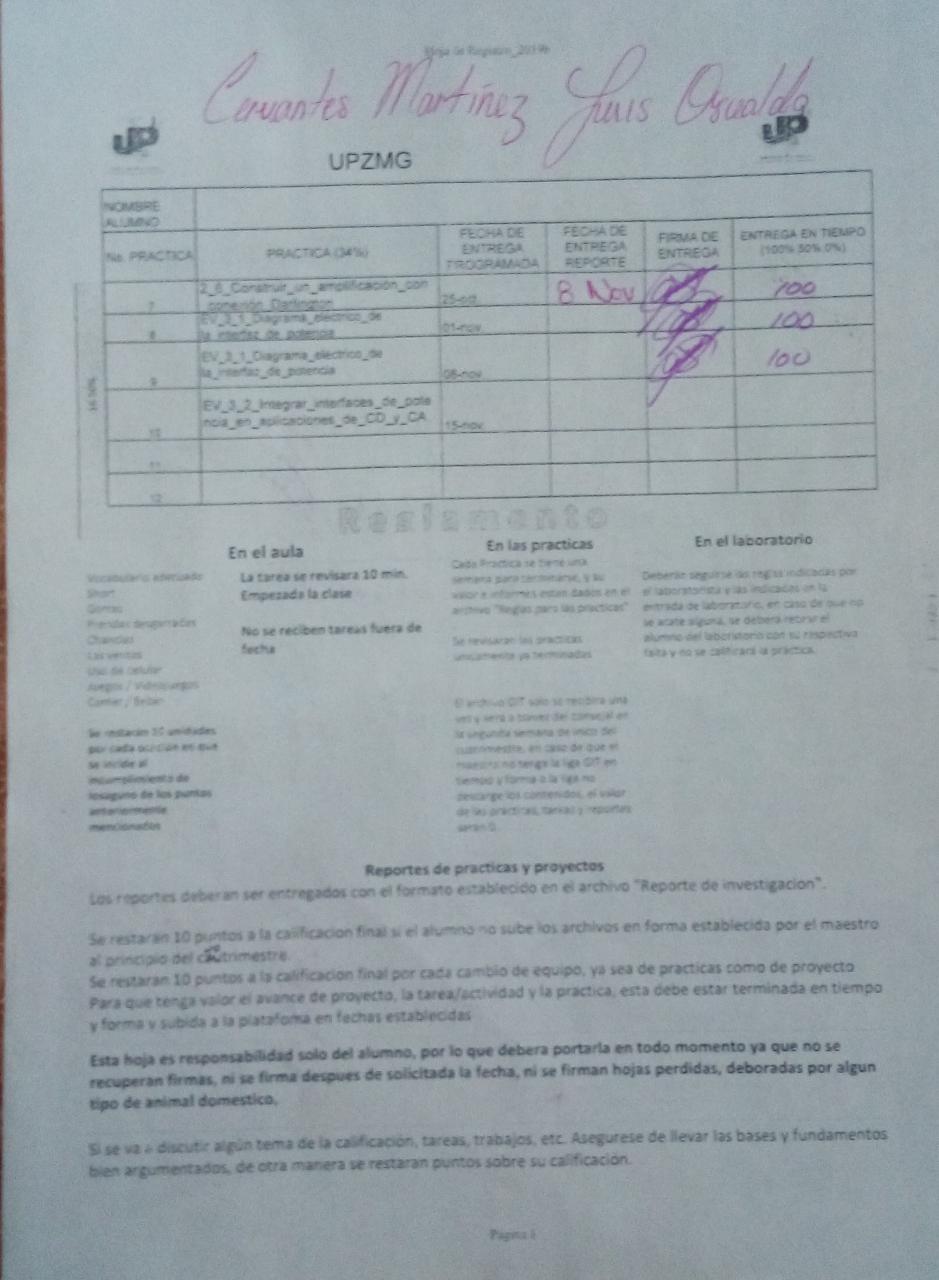 Hoja de Registro_2019b
Cervantes Martínez Luis Oswaldo
UP UP
UPZMG
NOMBRE ALUMNO
No. PRACTICA PRACTICA (34%) FECHA DE ENTREGA PROGRAMADA FECHA DE ENTREGA REPORTE FIRMA DE ENTREGA ENTREGA EN TIEMPO (100% 50% 0%)
7 2_6_Construir_un_amplificación_con_conexión_Darlington 25-oct 8 Nov 100
8 EV_3_1_Diagrama_eléctrico_de la_interfaz_de_potencia 01-nov 100
9 EV_3_1_Diagrama_eléctrico_de la_interfaz_de_potencia 08-nov 100
10 EV_3_2_Integrar_interfaces_de_pote ncia_en_aplicaciones_de_CD_y_CA 15-nov
11
12
Reglamento
En el aula
Vocabulario adecuado
Short
Gorras
Prendas desgarradas
Chanclas
Las ventas
Uso de celular
Juegos / Videojuegos
Comer / Beber
Se restaran 10 unidades
por cada ocasión en que
se incide al
incumplimiento de
los puntos
anteriormente
mencionados
La tarea se revisara 10 min.
Empezada la clase
No se reciben tareas fuera de
fecha
En las practicas
Cada Practica se tiene una
semana para terminarse, y su
valor e informes estan dados en el
archivo "Reglas para las practicas"
Se revisaran las practicas
unicamente ya terminadas
El archivo GIT solo se recibira una
vez y sera a traves del consejal en
la segunda semana de inicio del
cuatrimestre, en caso de que el
maestro no tenga la liga GIT en
tiempo y forma o la liga no
descarge los contenidos, el valor
de las prácticas, tareas y reportes
seran 0.
En el laboratorio
Deberán seguirse las reglas indicadas por
el laboratorista y las indicadas en la
entrada de laboratorio, en caso de que no
se acate alguna, se deberá retirar el
alumno del laboratorio con su respectiva
falta y no se calificará la práctica.
Reportes de practicas y proyectos
Los reportes deberan ser entregados con el formato establecido en el archivo "Reporte de investigacion".
Se restaran 10 puntos a la calificacion final si el alumno no sube los archivos en forma establecida por el maestro
al principio del cuatrimestre.
Se restaran 10 puntos a la calificacion final por cada cambio de equipo, ya sea de practicas como de proyecto
Para que tenga valor el avance de proyecto, la tarea/actividad y la practica, esta debe estar terminada en tiempo
y forma y subida a la plataforma en fechas establecidas
Esta hoja es responsabilidad solo del alumno, por lo que debera portarla en todo momento ya que no se
recuperan firmas, ni se firma despues de solicitada la fecha, ni se firman hojas perdidas, deboradas por algun
tipo de animal domestico.
Si se va a discutir algún tema de la calificación, tareas, trabajos, etc. Asegurese de llevar las bases y fundamentos
bien argumentados, de otra manera se restaran puntos sobre su calificación.
Pagina 1